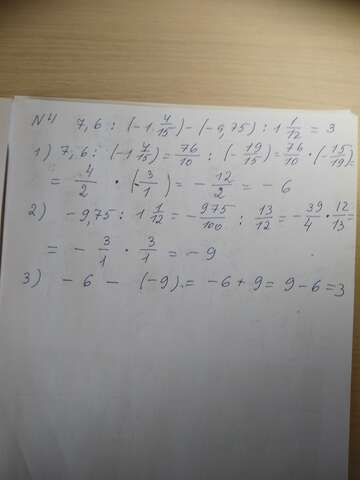 N4 7,6 : (-1 4/15) - (-9,75) : 1 1/12 = 3
1) 7,6 : (-1 4/15) = 76/10 : (-19/15) = 76/10 · (-15/19) =
= 4/2 · (-3/1) = -12/2 = -6
2) -9,75 : 1 1/12 = -975/100 : 13/12 = -39/4 · 12/13 =
= -3/1 · 3/1 = -9
3) -6 - (-9) = -6 + 9 = 9 - 6 = 3